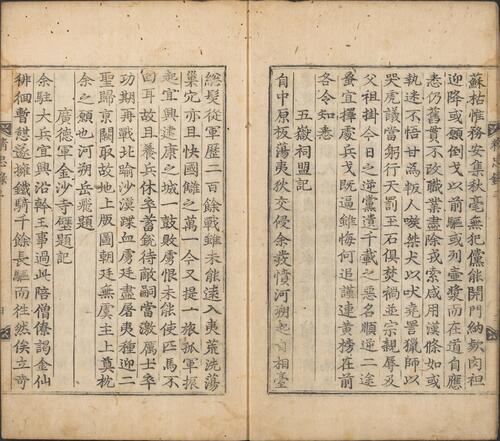 蘇枯惟務安集秋毫無犯儻能開門納款肉袒
迎降或願倒戈以前驅或列壺漿而在道自應
悉仍舊貫不改職業盡除戎索咸用漢條如或
執迷不悟甘爲叛人嗾桀犬以吠堯詈獵師以
哭虎議當躬行天罰玉石俱焚禍並宗親辱及
父祖掛今日之逆黨遺千載之惡名順逆二途
蚤宜擇處兵戈既逼雖悔何追謹連黃榜在前
各令知悉
五嶽祠盟記
自中原板蕩夷狄交侵余發憤河朔起自相臺
總髮從軍歷二百餘戰雖未能遠入夷荒洗蕩
巢穴亦且快國讎之萬一今又提一旅孤軍振
起宜興建康之城一鼓敗虜恨未能使匹馬不
回耳故且養兵休卒蓄銳待敵嗣當激厲士卒
功期再戰北喻沙漠蹀血虜廷盡屠夷種迎二
聖歸京闕取故地上版圖朝廷無虞主上奠枕
余之願也河朔岳飛題
廣德軍金沙寺壁題記
余駐大兵宜興沿幹王事過此陪僧僚謁金仙
徘徊暫憩遂擁鐵騎千餘長驅而往然俟立奇